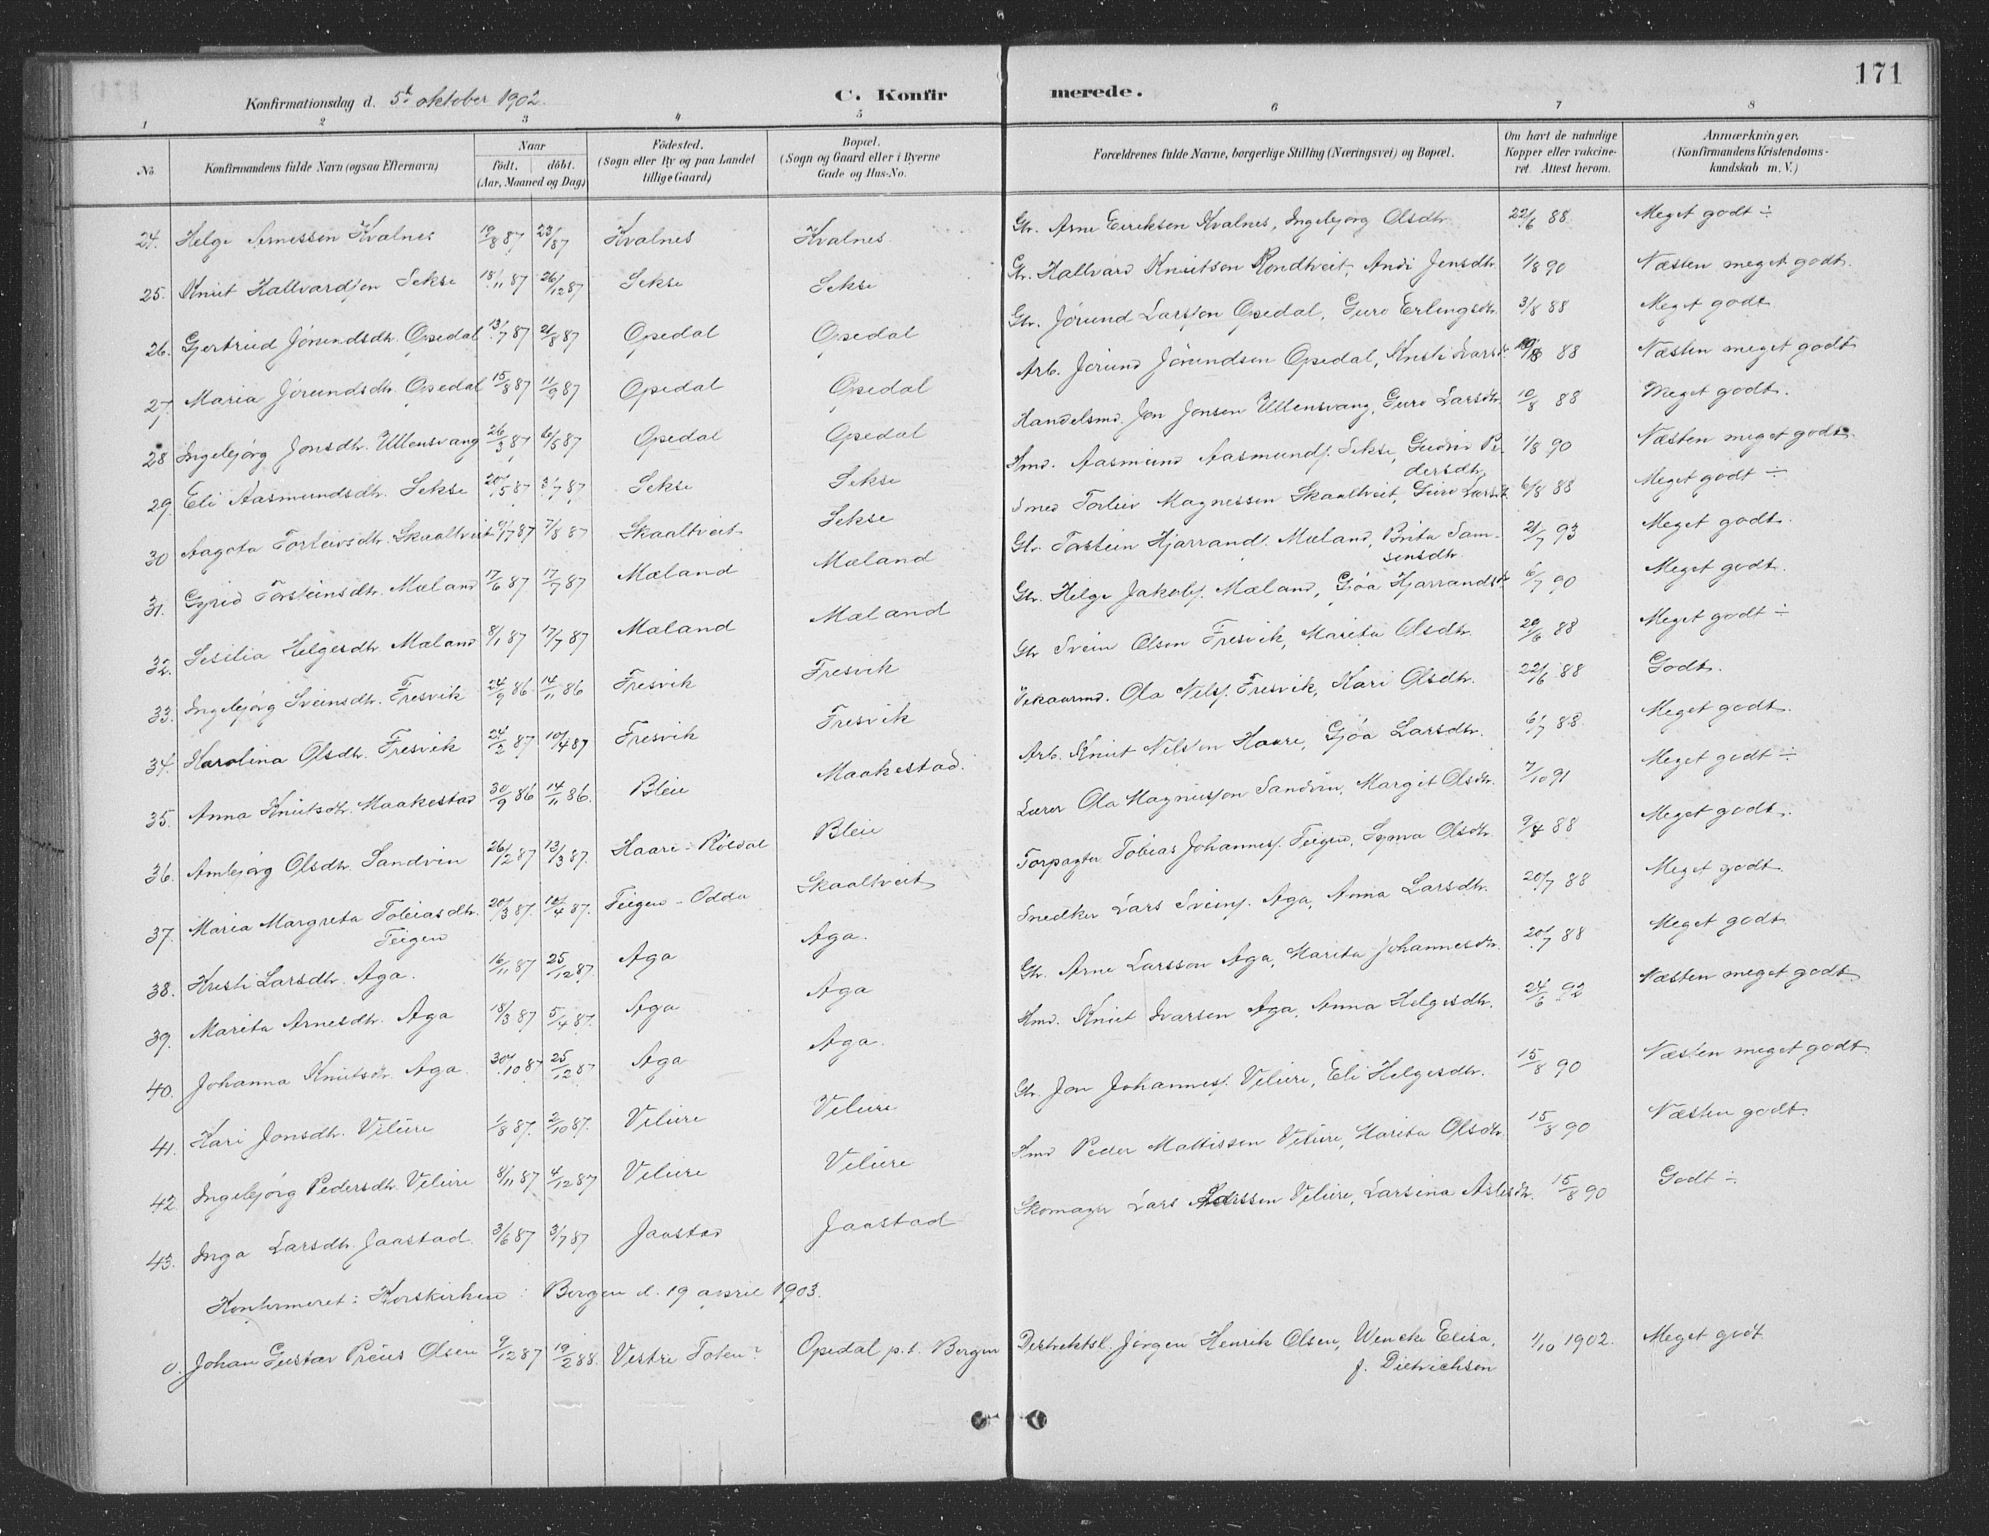 171
Konfirmationsdag d. 5t oktober 1902.
C. Konfir merede.
1 2 3 4 5 6 7 8
No
Konfirmandens fulde Navn (ogsaa Efternavn)
Naar
födt. döbt.
(Aar, Maaned og Dag)
Födested.
(Sogn eller By og paa Landet
tillige Gaard)
Bopæl.
(Sogn og Gaard eller i Byerne
Gade og Hus-No.
Forældrenes fulde Navne, borgerlige Stilling (Næringsvei) og Bopæl.
Om havt de naturlige
Kopper eller vakcine-
ret Attest herom.
Anmærkninger.
(Konfirmandens Kristendoms-
kundskab m. V.)
24. Helge Arnessen Kvalnes 19/8 87 23/ 87 Kvalnes Kvalnes Gbr. Arne Eiriksen Kvalnes, Ingebjørg Olsdtr. 22/6 88. Meget godt ÷
25. Knut Hallvardsen Sekse 18/11 87 26/12 87 Sekse Sekse Gbr. Hallvard Knutson Rondtveit, Andi Jensdtr. 1/8 90 Næsten meget godt.
26. Gjertrud Jörundsdtr. Opedal 13/7 87 21/8 87 Opedal Opedal Gbr. Jörund Larssen Opedal, Guro Erlingsdtr. 3/8 88 Meget godt
27. Maria Jörundsdtr. Opedal 15/8 87 11/9 87 Opedal Opedal Arb. Jörund Jörundsen Opedal, Kristi Larsdtr. 88 Næsten meget godt
28 Ingebjörg Jonsdtr. Ullensvang 26/3 87 6/5 87 Opedal Opedal Handelsmd. Jon Jonsen Ullensvang, Guro Larsdtr. 10/8 88 Meget godt.
29. Eli Aasmundsdtr. Sekse 20/5 87 3/7 87 Sekse Sekse Hmd. Aasmund Aasmunds. Sekse, Gudve Pe-
dersdtr. 1/8 90 Næsten meget godt.
30 Aagota Torleivsdtr. Skaaltveit 9/7 87 7/8 87 Skaaltveit Sekse Smed Torleiv Magnessen Skaaltveit, Guro Larsdt. 6/8 88 Meget godt ÷
31. Gyrid Torsteinsdtr. Mæland 17/6 87 17/7 87 Mæland Mæland Gbr. Torstein Hjarrands. Mæland, Brita Sam-
sonsdtr. 21/7 93 Meget godt.
32. Sesilia Helgesdtr. Mæland 8/1 87 17/7 87 Mæland Mæland Gbr. Helge Jakobs. Mæland, Gjöa Hjarrandsdtr 6/7 90 Meget godt.
33. Ingebjörg Sveinsdtr. Fresvik 24/9 86. 14/11 86 Fresvik Fresvik Gbr Svein Olsen Fresvik, Marita Olsdtr. 20/6 88 Meget godt ÷
34. Karolina Olsdtr. Fresvik 24/2 87 10/4 87 Fresvik Fresvik Vikaarmd. Ola Nils. Fresvik, Kari Olsdtr. 22/6 88 Godt.
35. Anna Knutsdtr. Maakestad 30/9 86 14/11 86. Bleie Maakestad. Arb. Knut Nilssen Haare, Gjöa Larsdtr. 6/7 88. Meget godt.
36. Ambjörg Olsdtr. Sandvin 26/12 87 13/3 87. Haare - Röldal Bleie Lærer Ola Magnusson Sandvin, Margit Olsdtr. 7/10 91 Meget godt ÷
37. Maria Margreta Tobiasdtr.
Teigen 20/3 87. 10/4 87. Teigen - Odda Skaaltveit Forpagter Tobias Johannes. Teigen, Synva Olsdtr. 9/4 88 Meget godt.
38. Kristi Larsdtr. Aga. 16/11 87 25/12 87. Aga Aga. Snedker Lars Sveins. Aga, Anna Larsdtr. 20/7 88 Meget godt.
39. Marita Arnesdtr. Aga 18/3 87 5/4 87. Aga Aga Gbr. Arne Larsson Aga, Marita Johannesdtr. 20/7 88 Meget godt
40. Johanna Knutsdtr Aga 30/10 87 25/12 87 Aga Aga. Hmd. Knut Ivarsen Aga, Anna Helgesdtr. 24/6 92 Næsten meget godt
41. Kari Jonsdtr. Velure 1/8 87. 2/10 87. Velure Velure Gbr. Jon Johannes. Velure, Eli Helgesdtr. 15/8 90 Næsten meget godt.
42. Ingebjörg Pedersdtr Velure 8/11 87 4/12 87 Velure Velure Hmd Peder Mattissen Velure, Marita Olsdtr. 15/8 90 Næsten godt.
43. Inga Larsdtr. Jaastad. 3/6 87 3/7 87 Jaastad Jaastad Skomager Lars Larssen Velure, Larsina Aslesdtr. 15/8 90 Godt ÷
Konfirmeret i Korskirken i Bergen d. 19 april 1903.
0. Johan Gustav Preus Olsen 9/12 87 19/2 88. Vestre Toten? Opedal p.t. Bergen Distriktsl. Jörgen Henrik Olsen, Wencke Elisa,
f. Dietrichson 1/10 1902. Meget godt